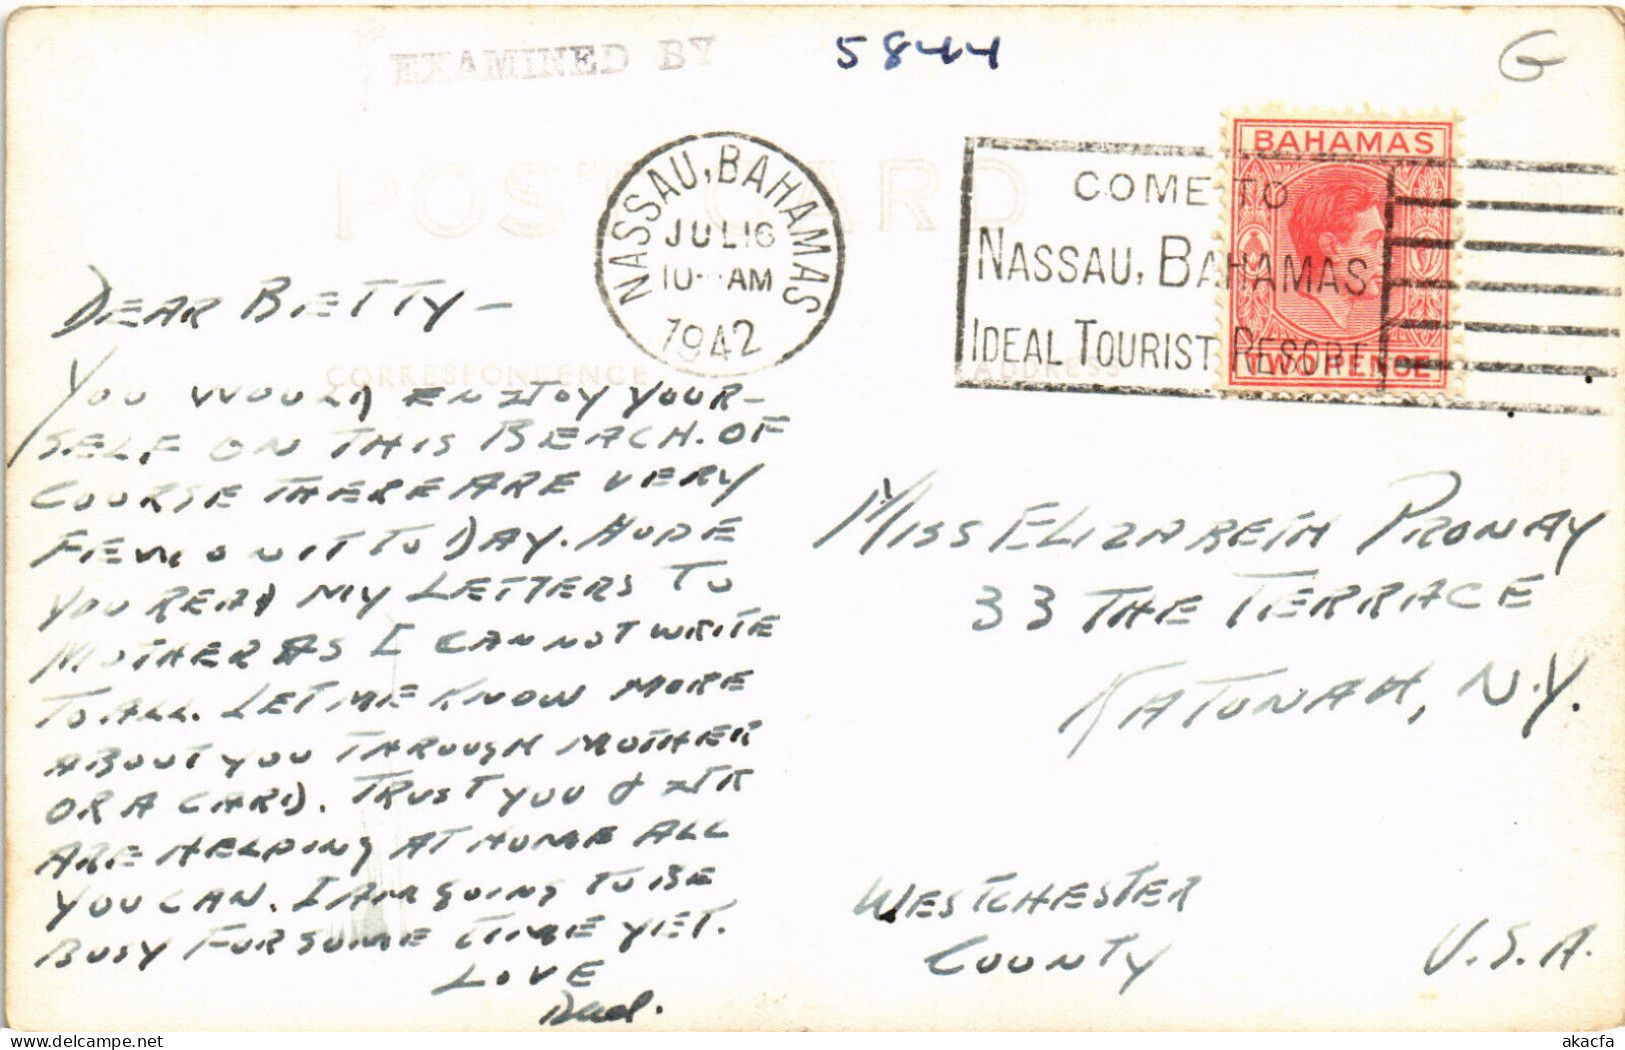 EXAMINED BY 5844
G
POST CARD
NASSAU, BAHAMAS
JUL 16
10 AM
1942
COME TO
NASSAU, BAHAMAS
IDEAL TOURIST RESORT
BAHAMAS
TWO PENCE
CORRESPONDENCE
ADDRESS
DEAR BETTY -
YOU WOULD ENJOY YOUR-
SELF ON THIS BEACH. OF
COURSE THERE ARE VERY
FEW ON IT TODAY. HOPE
YOU READ MY LETTERS TO
MOTHER AS I CANNOT WRITE
TO ALL. LET ME KNOW MORE
ABOUT YOU THROUGH MOTHER
OR A CARD. TRUST YOU & JR
ARE HELPING AT HOME ALL
YOU CAN. I AM GOING TO BE
BUSY FOR SOME TIME YET.
LOVE
Dad.
MISS ELIZABETH PRONAY
33 THE TERRACE
KATONAH, N.Y.
WESTCHESTER
COUNTY
U.S.A.
delcampe.net
akacfa